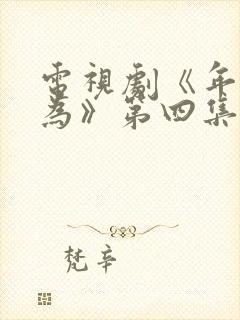 電視劇《年
為》第四集
梵辛